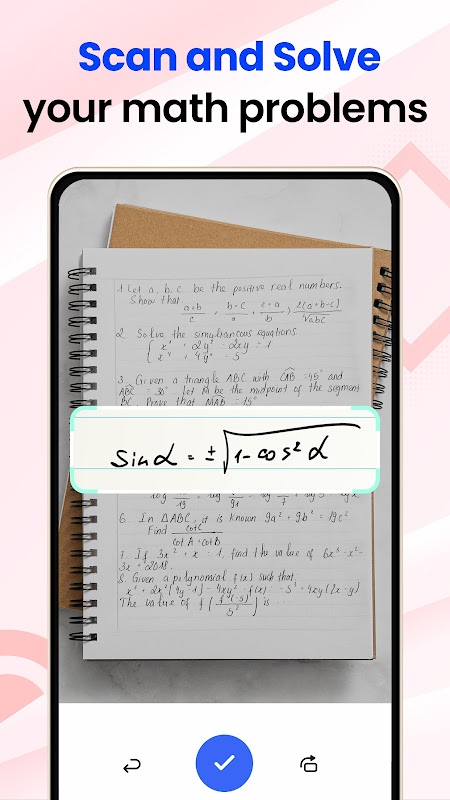 Scan and Solve
your math problems
1 Let a, b, c be the positive real numbers.
Show that a+b/c + b+c/a + c+a/b >
2 Solve the simultaneous equations
= 1
= 5
3. Given a triangle ABC with CAB = 45° and
ABC = 30° Let M be the midpoint of the segment
BC. Prove that MAB = 15°
sin α = ±√1-cos² α
6. In △ABC, it is known 9a² + 9b² = 19c².
Find cotC / cotA + cotB
7. If 3x² + x = 1, find the value of 6x³ - x² -
3x + 2018.
8. Given a polynomial f(x) such that,
x² + 2x²(4y-1) - 4xy² f(x) = -5³ + 4xy(2x-y)
The value of f is ...